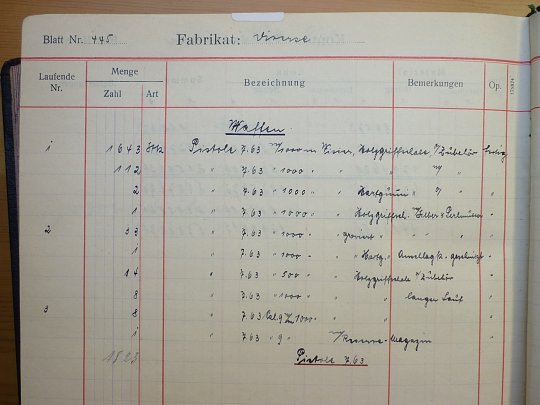 Blatt Nr. 445 Fabrikat: Diverse
Laufende Nr. Menge Zahl Art Bezeichnung Bemerkungen Op.
Waffen.
1 1643 Stk Pistole 7.63 m/1000 m Visier, Holzgriffschale, m/Zubehör
112 " 7.63 " 1000 " " " "/
2 " 7.63 " 1000 " " Hartgummi " "/
1 " 7.63 " 1000 " " Holzgriffsch. m/Silber & Perlmutter
2 33 " 7.63 " 1000 " graviert " "
1 " 7.63 " 1000 " " Hartg. " Anschlag k. geschnitzt
14 " 7.63 " 500 " " Holzgriffschale m/Zubehör
8 " 7.63 " 1000 " " " langer Lauf
3 8 " 7.63 Cal. 9 1000 "
1 " 7.63 " 9 " m/Reserve-Magazin
1823 Pistole 7.63